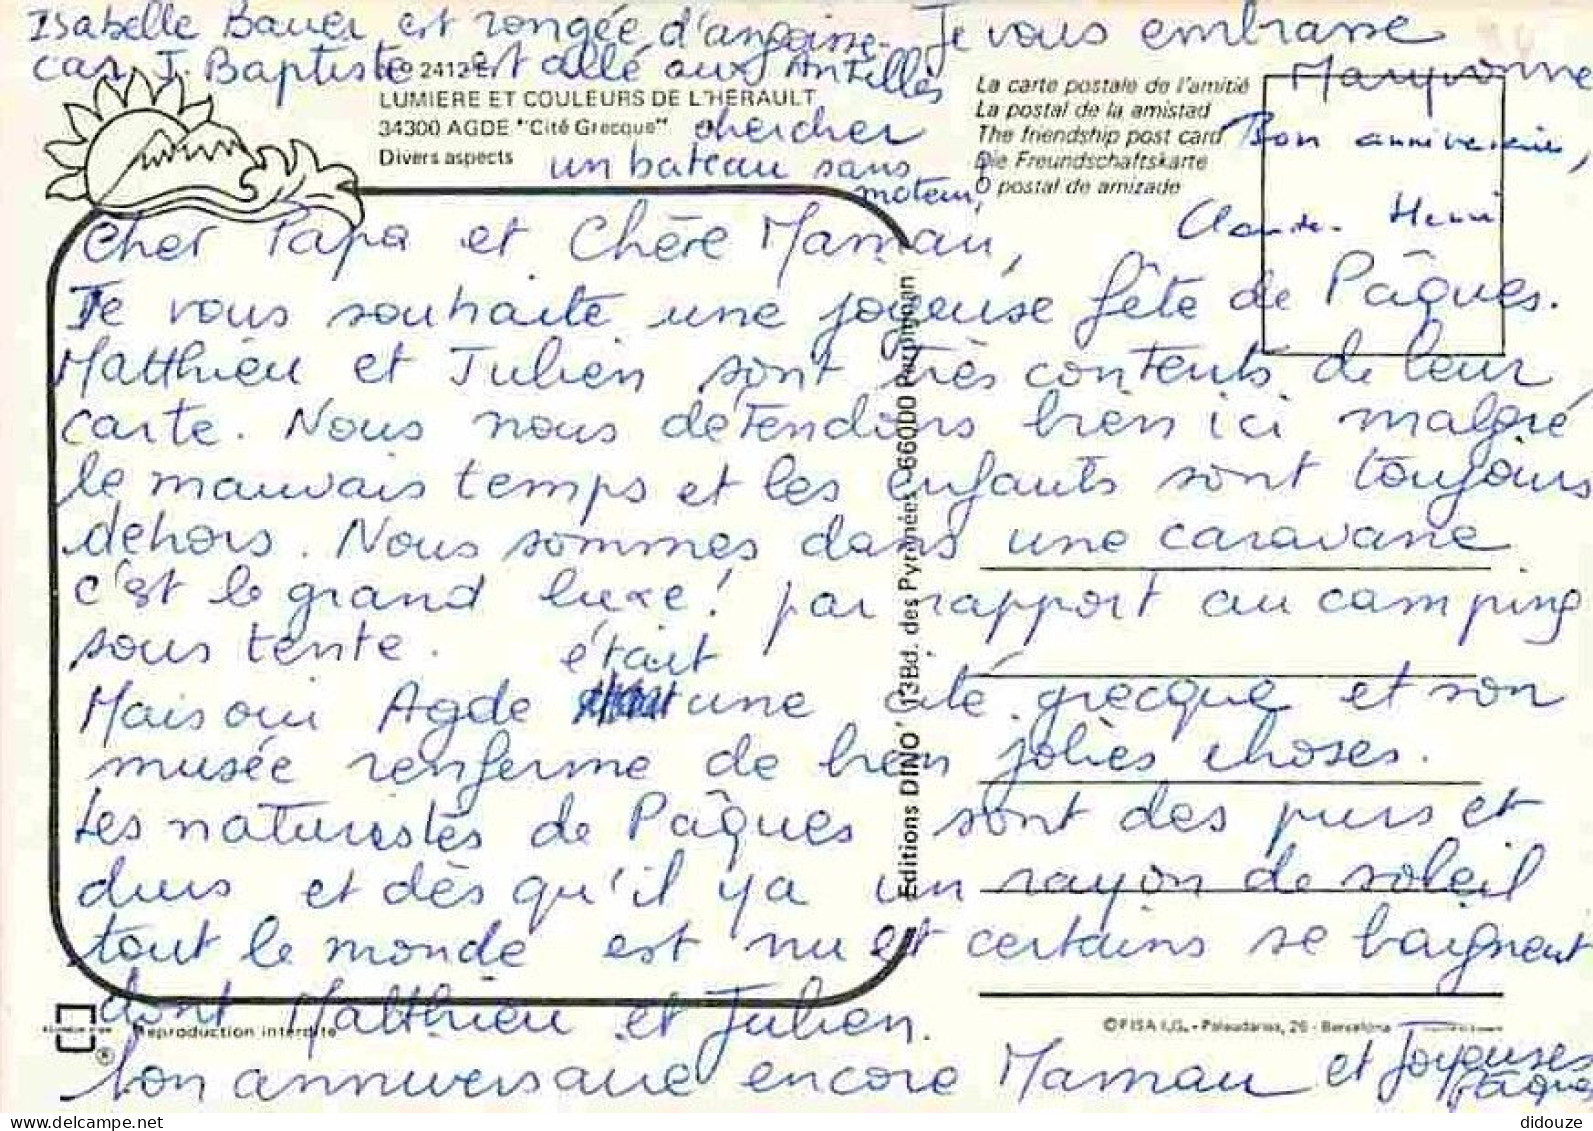 Cher Papa et Chère Maman,
Je vous souhaite une joyeuse fête de Pâques.
Matthieu et Julien sont très contents de leur
carte. Nous nous détendons bien ici malgré
le mauvais temps et les enfants sont toujours
dehors. Nous sommes dans une caravane
c'est le grand luxe! par rapport au camping
sous tente.
Mais oui Agde était une cité grecque et son
musée renferme de bien jolies choses.
Les naturistes de Pâques sont des purs et
durs et dès qu'il y a un rayon de soleil
tout le monde est nu et certains se baignent
dont Matthieu et Julien.
bon anniversaire encore Maman et Joyeuses
Pâques
Isabelle Bauer est rongée d'angoisse
car J. Baptiste est allé aux Antilles
chercher
un bateau sans
moteur!
Je vous embrasse
Maryvonne
Bon anniversaire,
Claude Henri
2412
LUMIERE ET COULEURS DE L'HERAULT
34300 AGDE "Cité Grecque"
Divers aspects
La carte postale de l'amitié
La postal de la amistad
The friendship post card
Die Freundschaftskarte
O postal de amizade
Editions DINO 13Bd. des Pyrénées 66000 Perpignan
Reproduction interdite
®
©FISA I.G. - Palaudarias, 26 - Barcelona
didouze